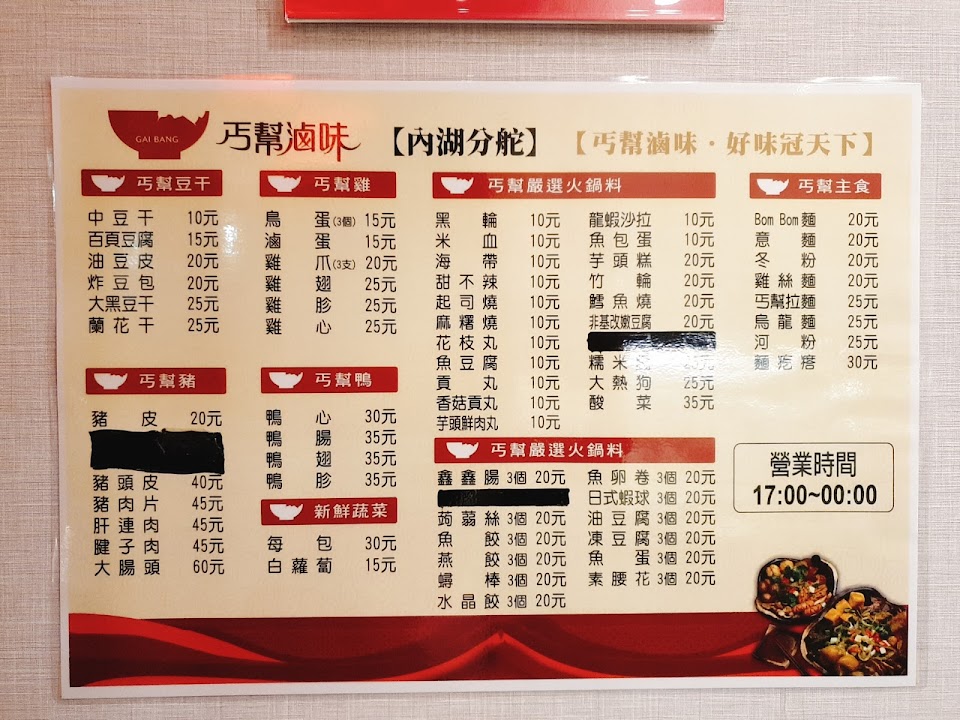 GAI BANG
丐幫滷味
【內湖分舵】
【丐幫滷味·好味冠天下】
丐幫豆干
中豆干 10元
百頁豆腐 15元
油豆皮 20元
炸豆包 20元
大黑豆干 25元
蘭花干 25元
丐幫豬
豬皮 20元
豬頭皮 40元
豬肉片 45元
肝連肉 45元
腱子肉 45元
大腸頭 60元
丐幫雞
鳥蛋(3個) 15元
滷蛋 15元
雞爪(3支) 20元
雞翅 25元
雞胗 25元
雞心 25元
丐幫鴨
鴨心 30元
鴨腸 35元
鴨翅 35元
鴨胗 35元
新鮮蔬菜
每包 30元
白蘿蔔 15元
丐幫嚴選火鍋料
黑輪 10元
米血 10元
海帶 10元
甜不辣 10元
起司燒 10元
麻糬燒 10元
花枝丸 10元
魚豆腐 10元
貢丸 10元
香菇貢丸 10元
芋頭鮮肉丸 10元
龍蝦沙拉 10元
魚包蛋 10元
芋頭糕 20元
竹輪 20元
鱈魚燒 20元
非基改嫩豆腐 20元
糯米 25元
大熱狗 25元
酸菜 35元
丐幫嚴選火鍋料
鑫鑫腸 3個 20元
蒟蒻絲 3個 20元
魚餃 3個 20元
燕餃 3個 20元
蟳棒 3個 20元
水晶餃 3個 20元
魚卵卷 3個 20元
日式蝦球 3個 20元
油豆腐 3個 20元
凍豆腐 3個 20元
魚蛋 3個 20元
素腰花 3個 20元
丐幫主食
Bom Bom麵 20元
意麵 20元
冬粉 20元
雞絲麵 20元
丐幫拉麵 25元
烏龍麵 25元
河粉 25元
麵疙瘩 30元
營業時間
17:00~00:00